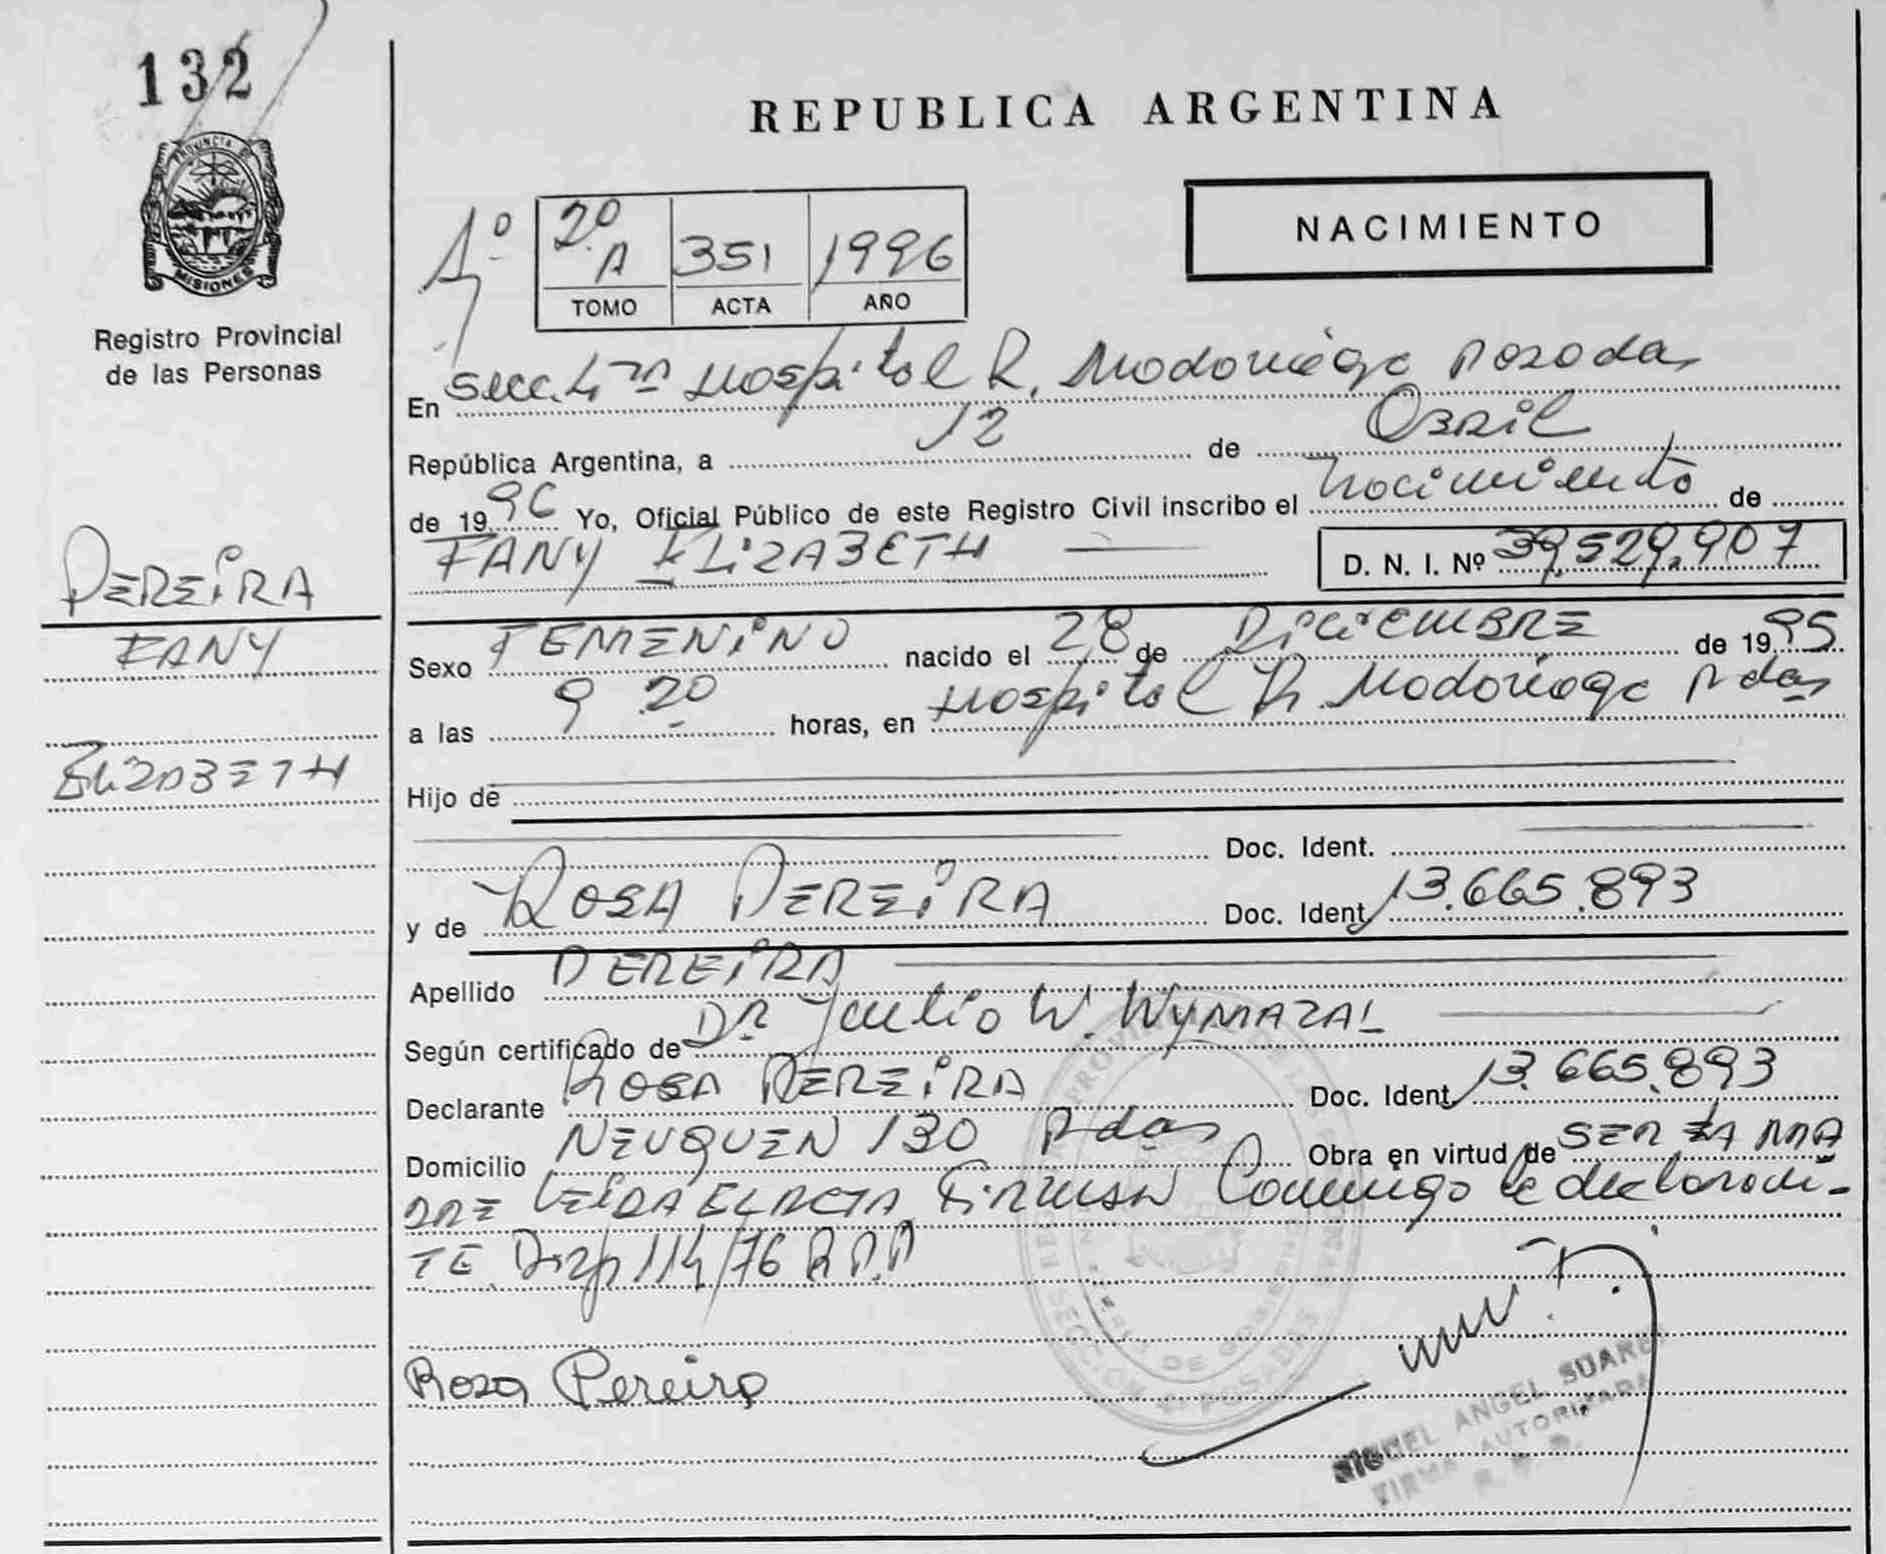 132
PROVINCIA DE
MISIONES
Registro Provincial
de las Personas
REPUBLICA ARGENTINA
NACIMIENTO
1º
2º A 351 1996
TOMO ACTA AÑO
En Secc. 4ta Hospital R. Madariaga Posadas
República Argentina, a 12 de Abril
de 1996 Yo, Oficial Público de este Registro Civil inscribo el Nacimiento de
FANY ELIZABETH D. N. I. Nº 39.529.907
PEREIRA
FANY
ELIZABETH
Sexo FEMENINO nacido el 28 de DICIEMBRE de 1995
a las 9 20 horas, en Hospital R. Madariaga Pdas
Hijo de
Doc. Ident.
y de ROSA PEREIRA Doc. Ident. 13.665.893
Apellido PEREIRA
Según certificado de DR Julio W. WYMAZAL
Declarante ROSA PEREIRA Doc. Ident. 13.665.893
Domicilio NEUQUEN 130 Pdas Obra en virtud de SER LA MA
DRE LEIDA EL ACTA FIRMAN Conmigo la declaran-
TE. Disp 114/76 R.P.P
Rosa Pereira
MIGUEL ANGEL SUAREZ
FIRMA AUTORIZADA
R. P. P.